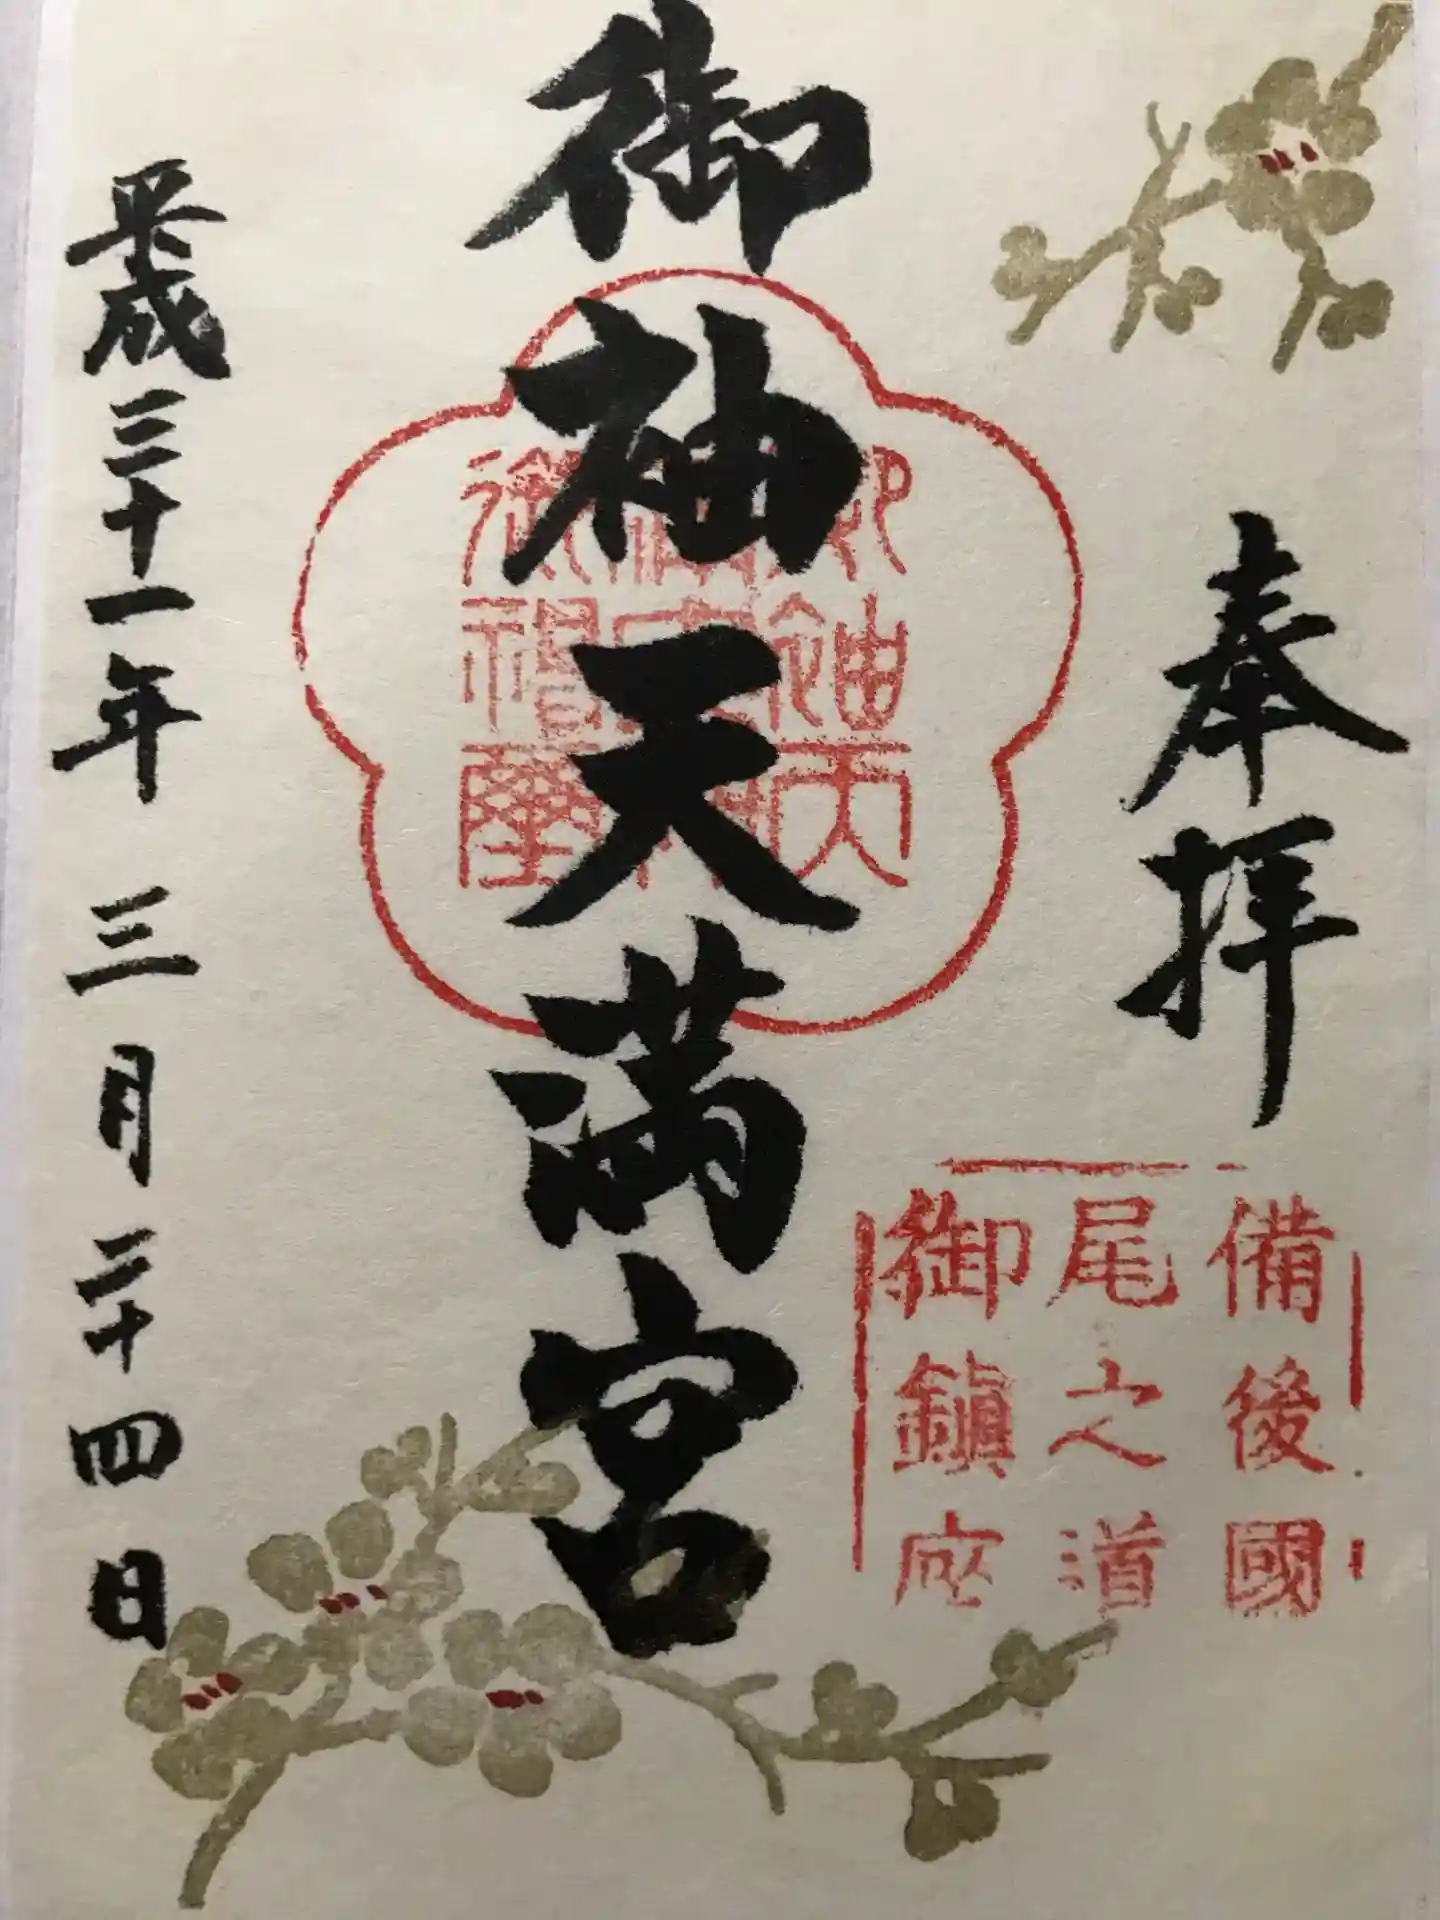 奉拝
備後國
尾之道
御鎮座
御袖天満宮
御袖天
平成三十一年三月二十四日